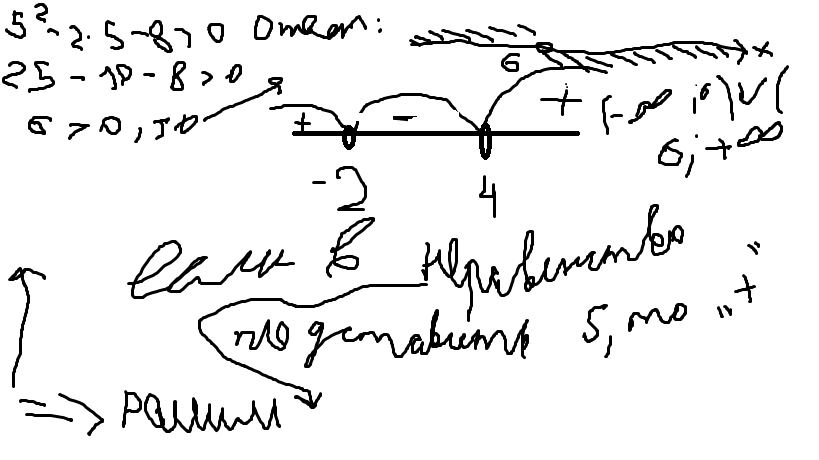 5²-2·5-8>0 Ответ:
25-10-8>0
6>0, то
6 x
+ - +
(-∞;6)∨(
6;+∞
-2 4
Если в неравенство
подставить 5, то „+“
=> решили